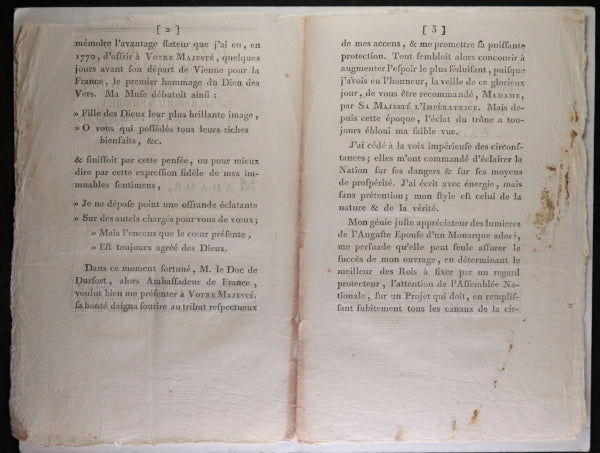 [ 2 ]
mémoire l'avantage flateur que j'ai eu, en
1770, d'offrir à VOTRE MAJESTÉ, quelques
jours avant son départ de Vienne pour la
France, le premier hommage du Dieu des
Vers. Ma Muse débutoit ainsi :
» Fille des Dieux leur plus brillante image,
» O vous qui possédés tous leurs riches
bienfaits, &c.
& finissoit par cette pensée, ou pour mieux
dire par cette expression fidèle de mes im-
muables sentimens,
» Je ne dépose point une offrande éclatante
» Sur des autels chargés pour vous de vœux;
» Mais l'encens que le cœur présente,
» Est toujours agréé des Dieux.
Dans ce moment fortuné, M. le Duc de
Dursort, alors Ambassadeur de France,
voulut bien me présenter à VOTRE MAJESTÉ.
sa bonté daigna sourire au tribut respectueux
[ 3 ]
de mes accens, & me promettre sa puissante
protection. Tout sembloit alors concourir à
augmenter l'espoir le plus séduisant, puisque
j'avois eu l'honneur, la veille de ce glorieux
jour, de vous être recommandé, MADAME,
par SA MAJESTÉ L'IMPÉRATRICE. Mais de-
puis cette époque, l'éclat du trône a tou-
jours ébloui ma faible vue.
J'ai cédé à la voix impérieuse des circons-
tances; elles m'ont commandé d'éclairer la
Nation sur ses dangers & sur ses moyens
de prospérité. J'ai écrit avec énergie, mais
sans prétention; mon style est celui de la
nature & de la vérité.
Mon génie juste appréciateur des lumieres
de l'Auguste Epouse d'un Monarque adoré,
me persuade qu'elle peut seule assurer le
succès de mon ouvrage, en déterminant le
meilleur des Rois à fixer par un regard
protecteur, l'attention de l'Assemblée Na-
tionale, sur un Projet qui doit, en remplis-
sant subitement tous les canaux de la cir-